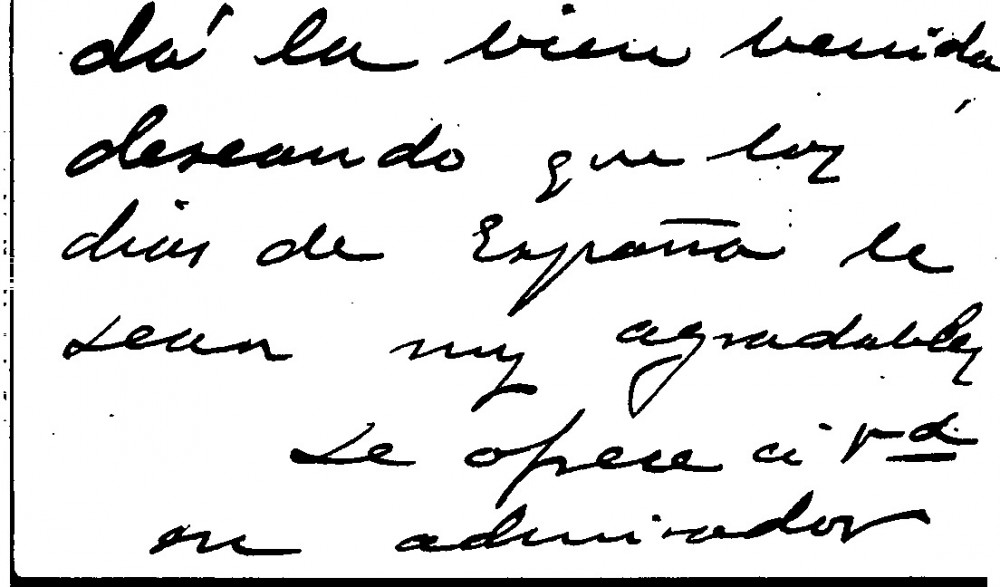 dá la bien venida
deseando que los
dias de España le
sean muy agradables
se ofrece á Vd
su admirador